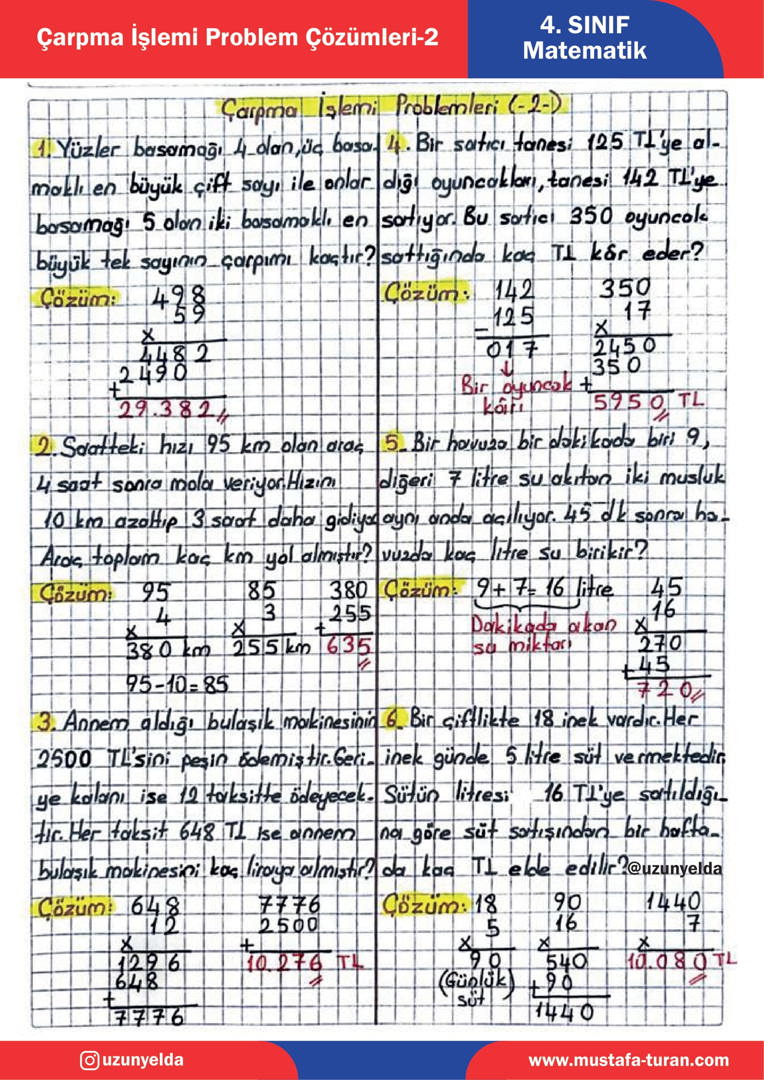 Çarpma İşlemi Problem Çözümleri-2
4. SINIF
Matematik
Çarpma İşlemi Problemleri (-2-)
1. Yüzler basamağı 4 olan, üç basa-
maklı en büyük çift sayı ile onlar
basamağı 5 olan iki basamaklı en
büyük tek sayının çarpımı kaçtır?
Çözüm: 498
59
x
4482
2490
+
29.382
2. Saatteki hızı 95 km olan araç
4 saat sonra mola veriyor. Hızını
10 km azaltıp 3 saat daha gidiyor
Araç toplam kaç km yol almıştır?
Çözüm: 95 85 380
4 3 255
x x +
380 km 255 km 635
95-10=85
3. Annem aldığı bulaşık makinesinin
2500 TL'sini peşin ödemiştir. Geri-
ye kalanı ise 12 taksitte ödeyecek-
tir. Her taksit 648 TL ise annem
bulaşık makinesini kaç liraya almıştır?
Çözüm: 648 7776
12 2500
x +
1296 10.276 TL
648
+
7776
4. Bir satıcı tanesi 125 TL'ye al-
dığı oyuncakları, tanesi 142 TL'ye
satıyor. Bu satıcı 350 oyuncak
sattığında kaç TL kâr eder?
Çözüm: 142 350
125 17
- x
017 2450
↓ 350
Bir oyuncak +
kârı 5950 TL
5. Bir havuza bir dakikada biri 9,
diğeri 7 litre su akıtan iki musluk
aynı anda açılıyor. 45 dk sonra ha-
vuzda kaç litre su birikir?
Çözüm: 9+7= 16 litre 45
16
Dakikada akan x
su miktarı 270
+45
720
6. Bir çiftlikte 18 inek vardır. Her
inek günde 5 litre süt vermektedir
Sütün litresi 16 TL'ye satıldığı-
na göre süt satışından bir hafta-
da kaç TL elde edilir?@uzunyelda
Çözüm: 18 90 1440
5 16 7
x x x
90 540 10.080 TL
(Günlük +90
süt) 1440
uzunyelda
www.mustafa-turan.com